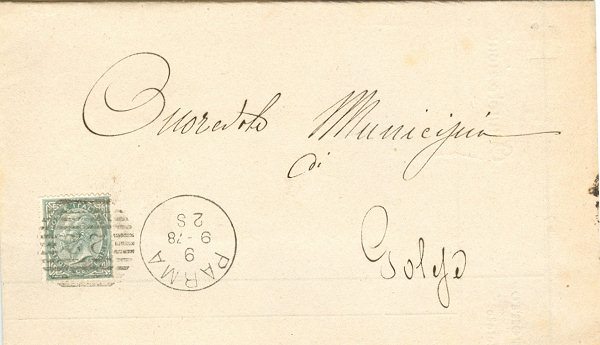 Onorevole Municipio
di
Golese
PARMA
9 -78
2 S